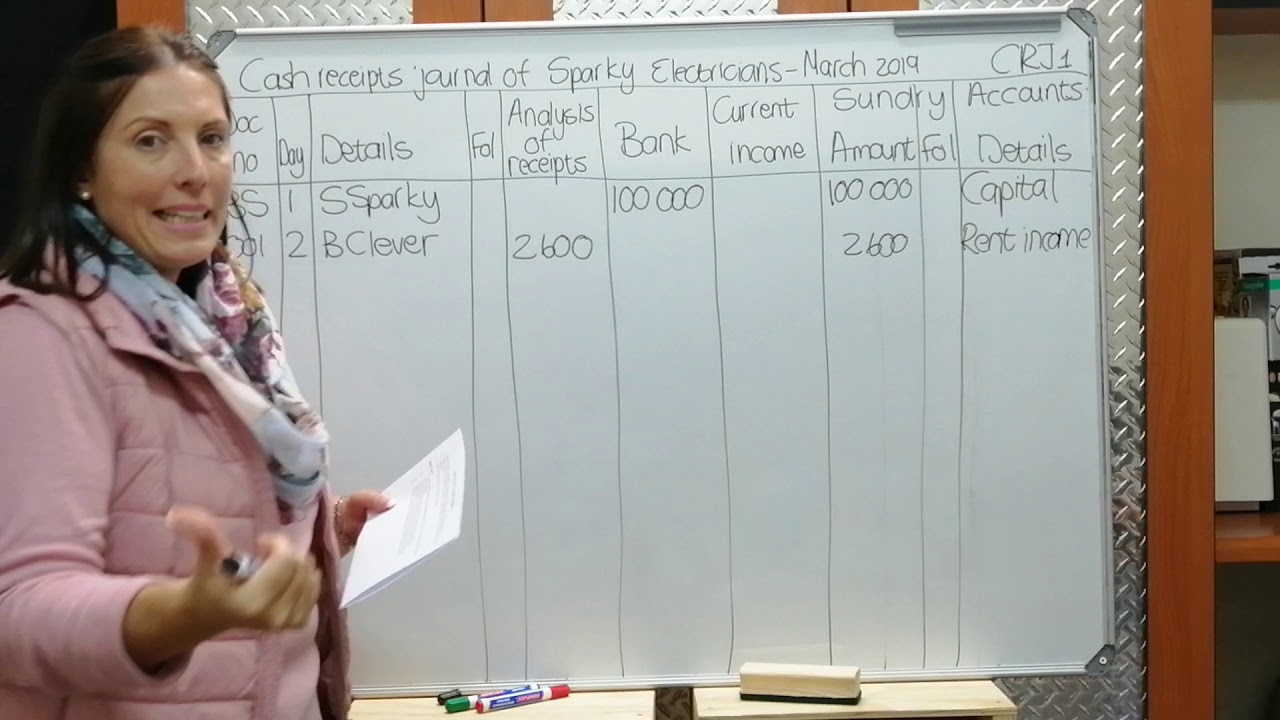 Cash receipts journal of Sparky Electricians - March 2019 CRJ1
no Day Details Fol Analysis of receipts Bank Current income Sundry Accounts
Amount Fol Details
1 S Sparky 100 000 100 000 Capital
001 2 B Clever 2 600 2 600 Rent income